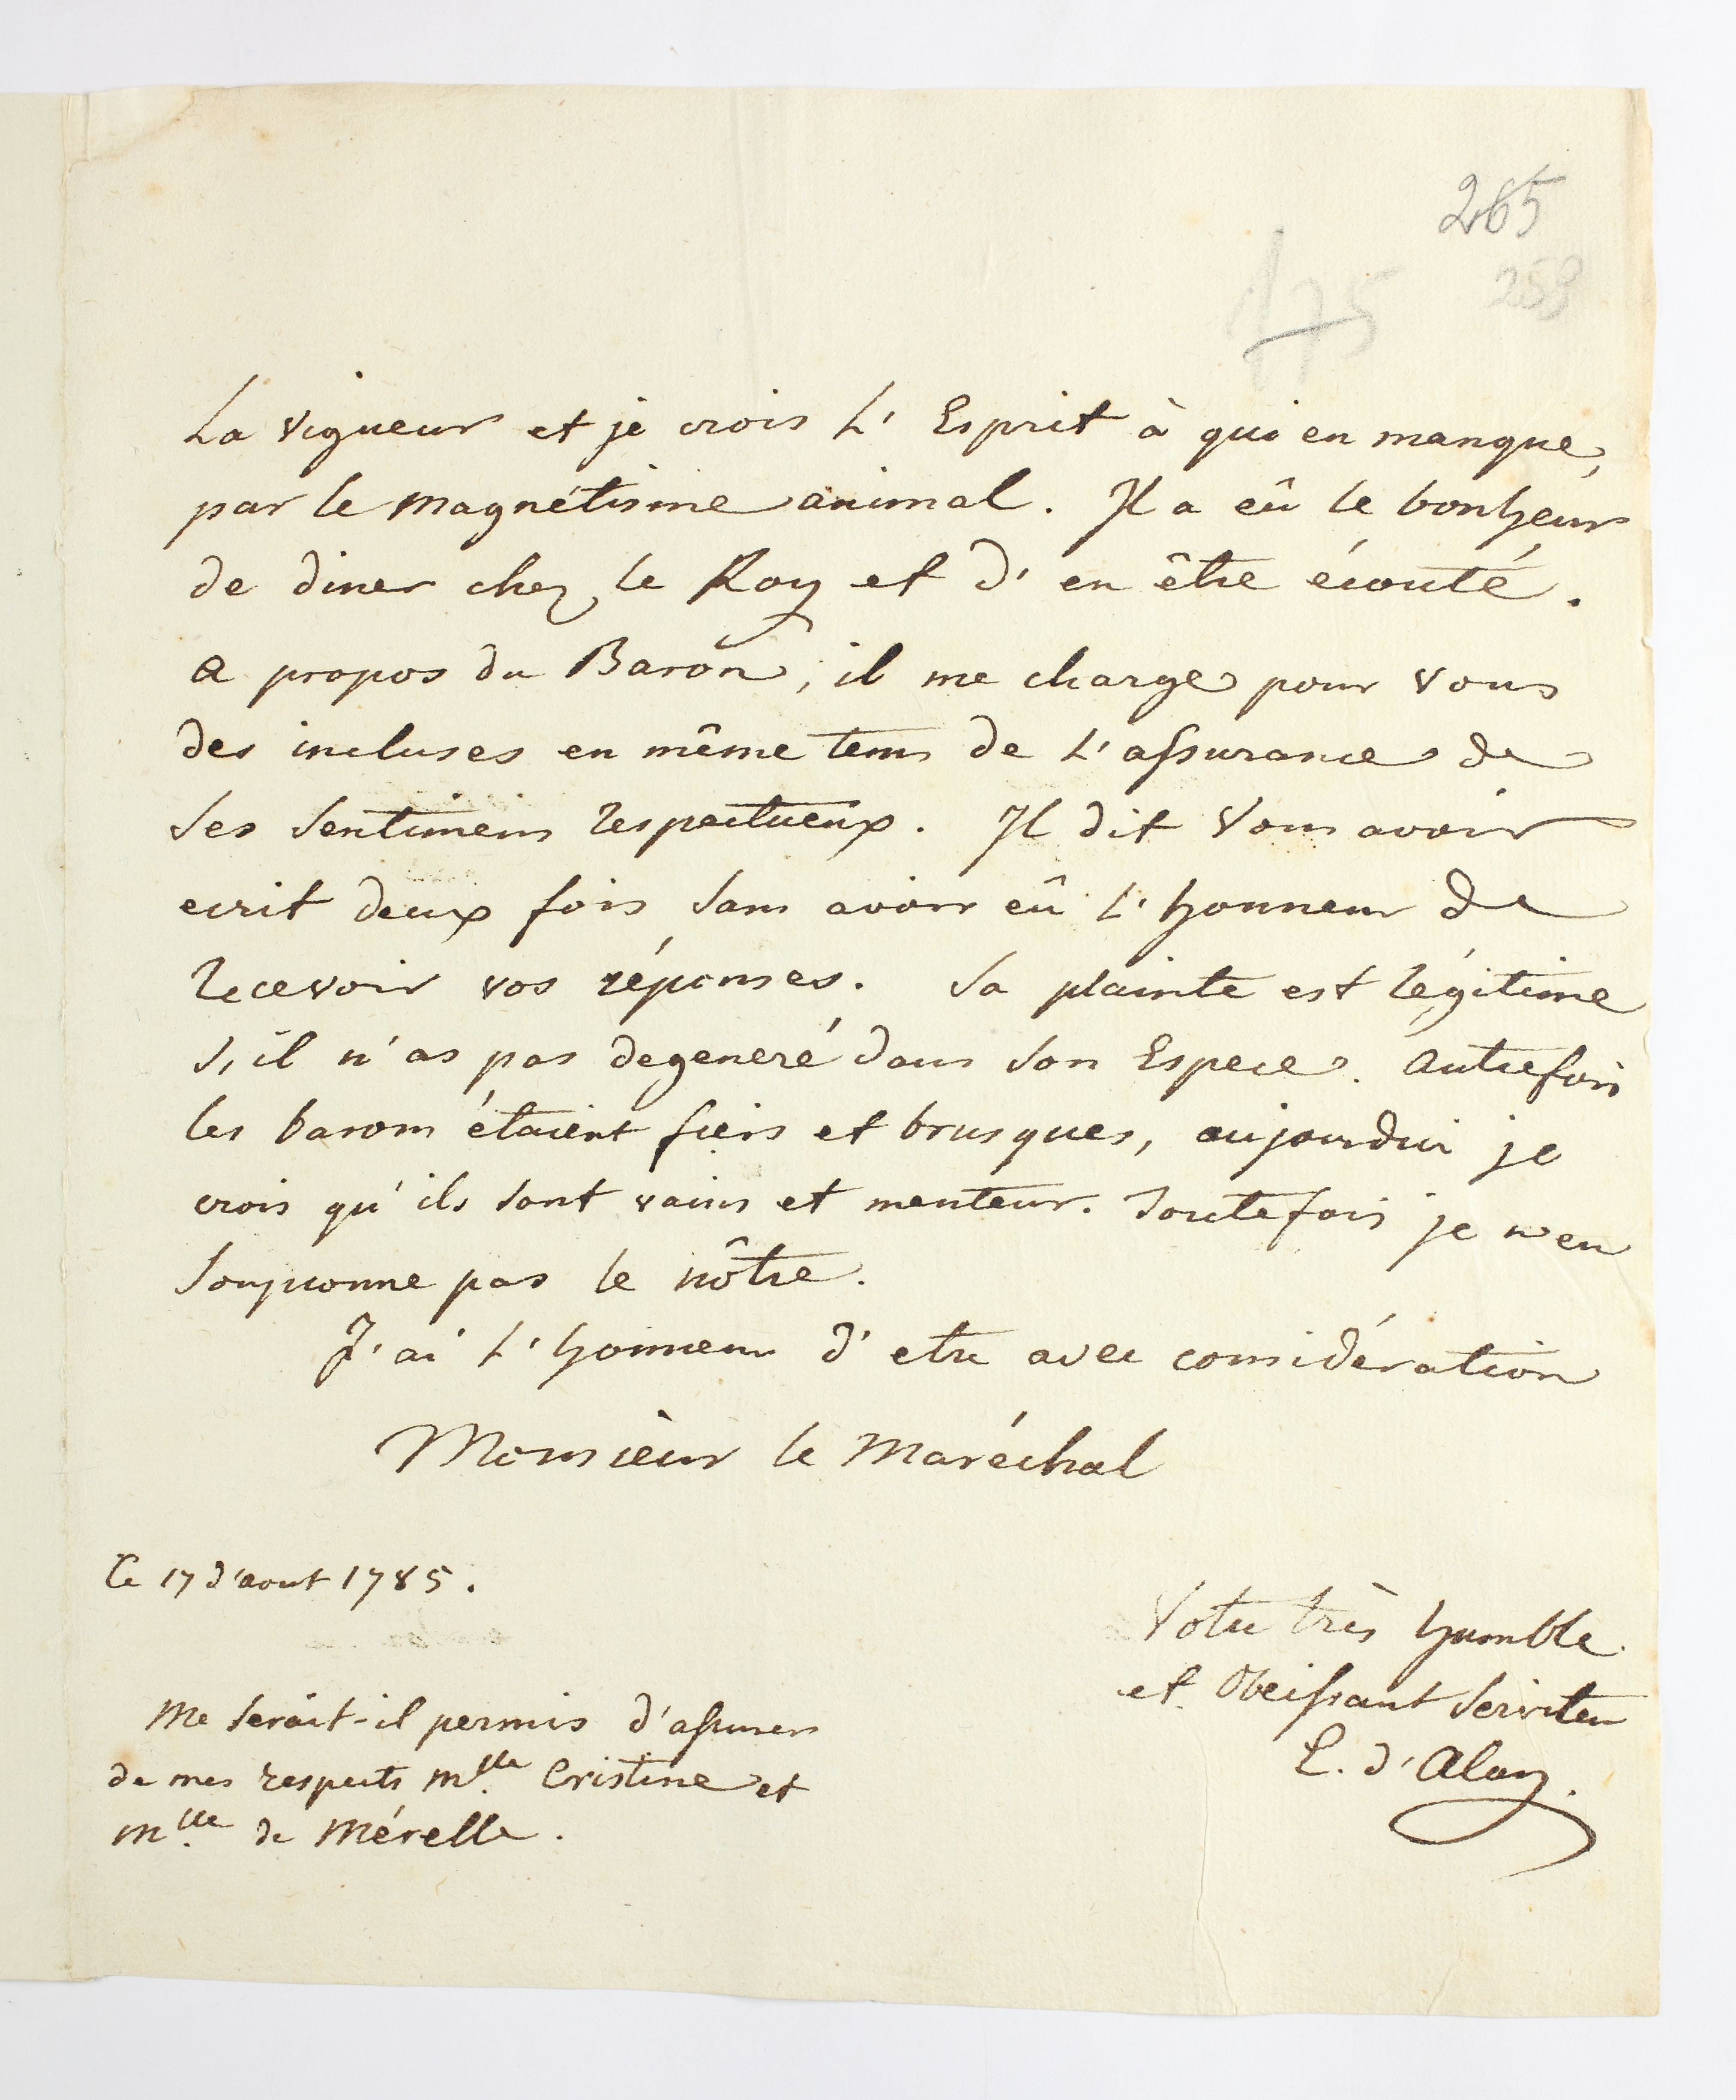 265
175
259
La vigueur et je crois L' Esprit à qui en manque,
par le magnétisme animal. Il a eû le bonheur
de diner chez le Roy et d' en être écouté.
a propos du Baron, il me charge pour vous
des incluses en même tems de L'assurance de
ses sentimens respectueux. Il dit vous avoir
ecrit deux fois sans avoir eû L' honneur de
recevoir vos réponses. Sa plainte est légitime
s'il n'as pas degeneré dans son Espece. Autrefois
les barons étaient fiers et brusques, aujourdui je
crois qu'ils sont vains et menteur. Toutefois je n'en
soupconne pas le nôtre.
J'ai L'honneur d' etre avec considération
Monsieur le Maréchal
Ce 17 d'aout 1785.
Votre très humble
et Obeissant serviteur
E. d'Aloy.
Me serait-il permis d'assurer
de mes respects Mlle Cristine et
Mlle de Mérelle.